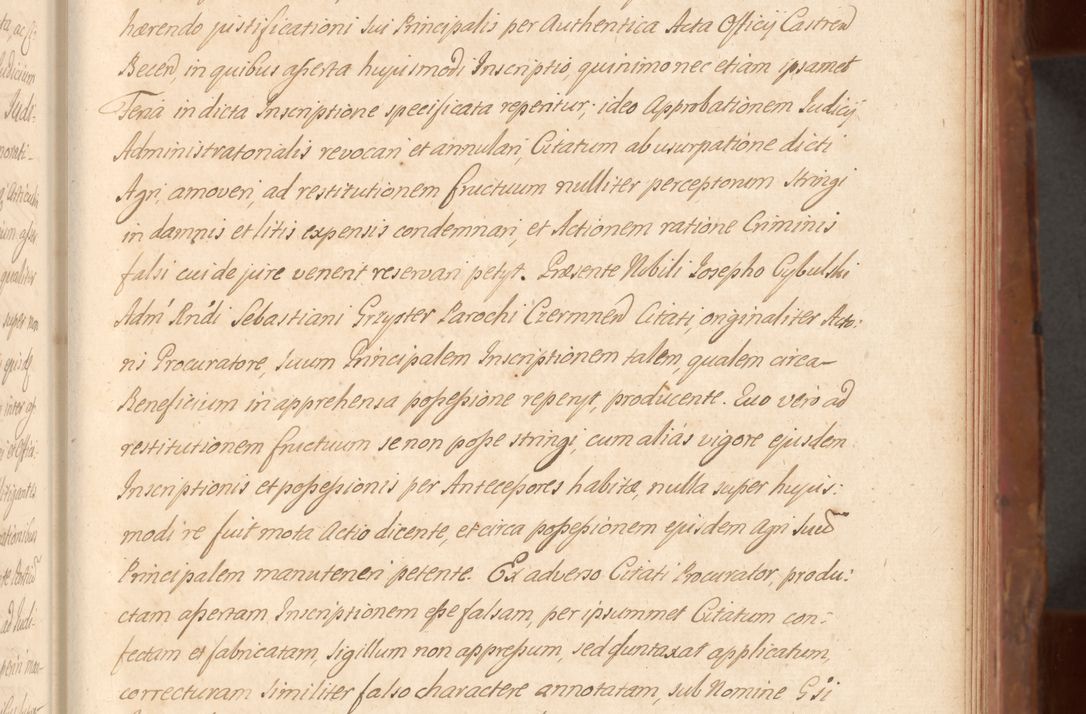 hærendo justificationi sui Principalis per Authentica Acta Officij Castren
Becen, in quibus aſserta hujusmodi Inscriptio, quinimo nec etiam ipsamet
Feria in dicta Inscriptione specificata reperitur; ideo Approbationem Judicij
Administratorialis revocari et annulari, Citatum ab usurpatione dicti
Agri, amoveri, ad restitutionem fructuum nulliter perceptorum stringi
in damnis et litis expensis condemnari, et Actionem ratione Criminis
falsi cui de jure venerit reservari petyt. Præsente Nobili Josepho Cybulski
Adm Rndi Sebastiani Grzyster Parochi Czermnen Citati, originaliter Acto:
ris Procuratore, suum Principalem Inscriptionem talem, qualem circa
Beneficium in apprehensa poſseſsione reperyt, producente. Quo vero ad
restitutionem fructuum se non poſse stringi, cum alias vigore ejusdem
Inscriptionis et poſseſsionis per Anteceſsores habitæ, nulla super hujus:
modi re fuit mota Actio dicente, et circa poſseſsionem ejusdem Agri suũ
Principalem manuteneri petente. Ex adverso Citati Procurator, produ:
ctam aſsertam Inscriptionem eſse falsam, per ipsummet Citatum con:
fectam et fabricatam, sigillum non appreſsum, sed duntaxat applicatum,
correcturam similiter falso charactere annotatam, sub Nomine Gsi